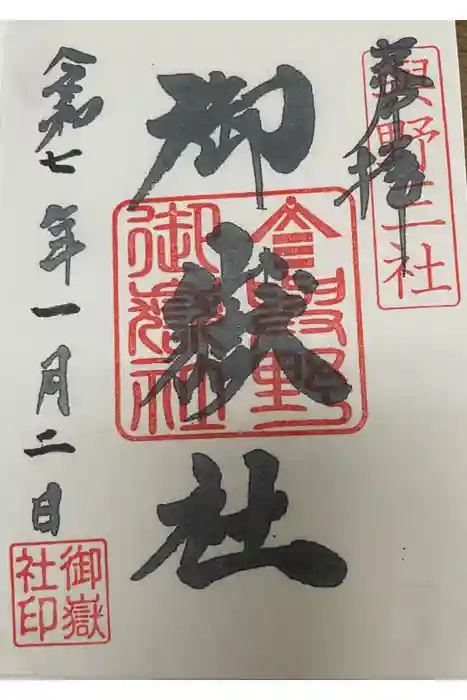 奉拝
與野三社
御嶽社
與野
御嶽社
令和七年一月二日
御嶽
社印